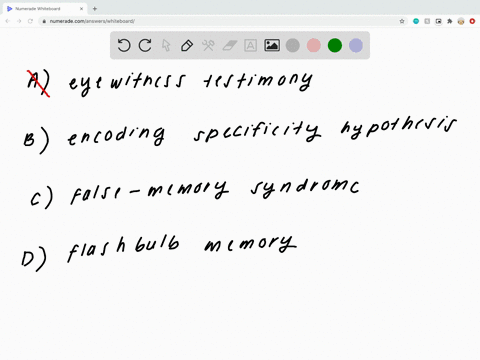 Numerade Whiteboard
numerade.com/answers/whiteboard/
A) eyewitness testimony
B) encoding specificity hypothesis
C) false-memory syndrome
D) flashbulb memory